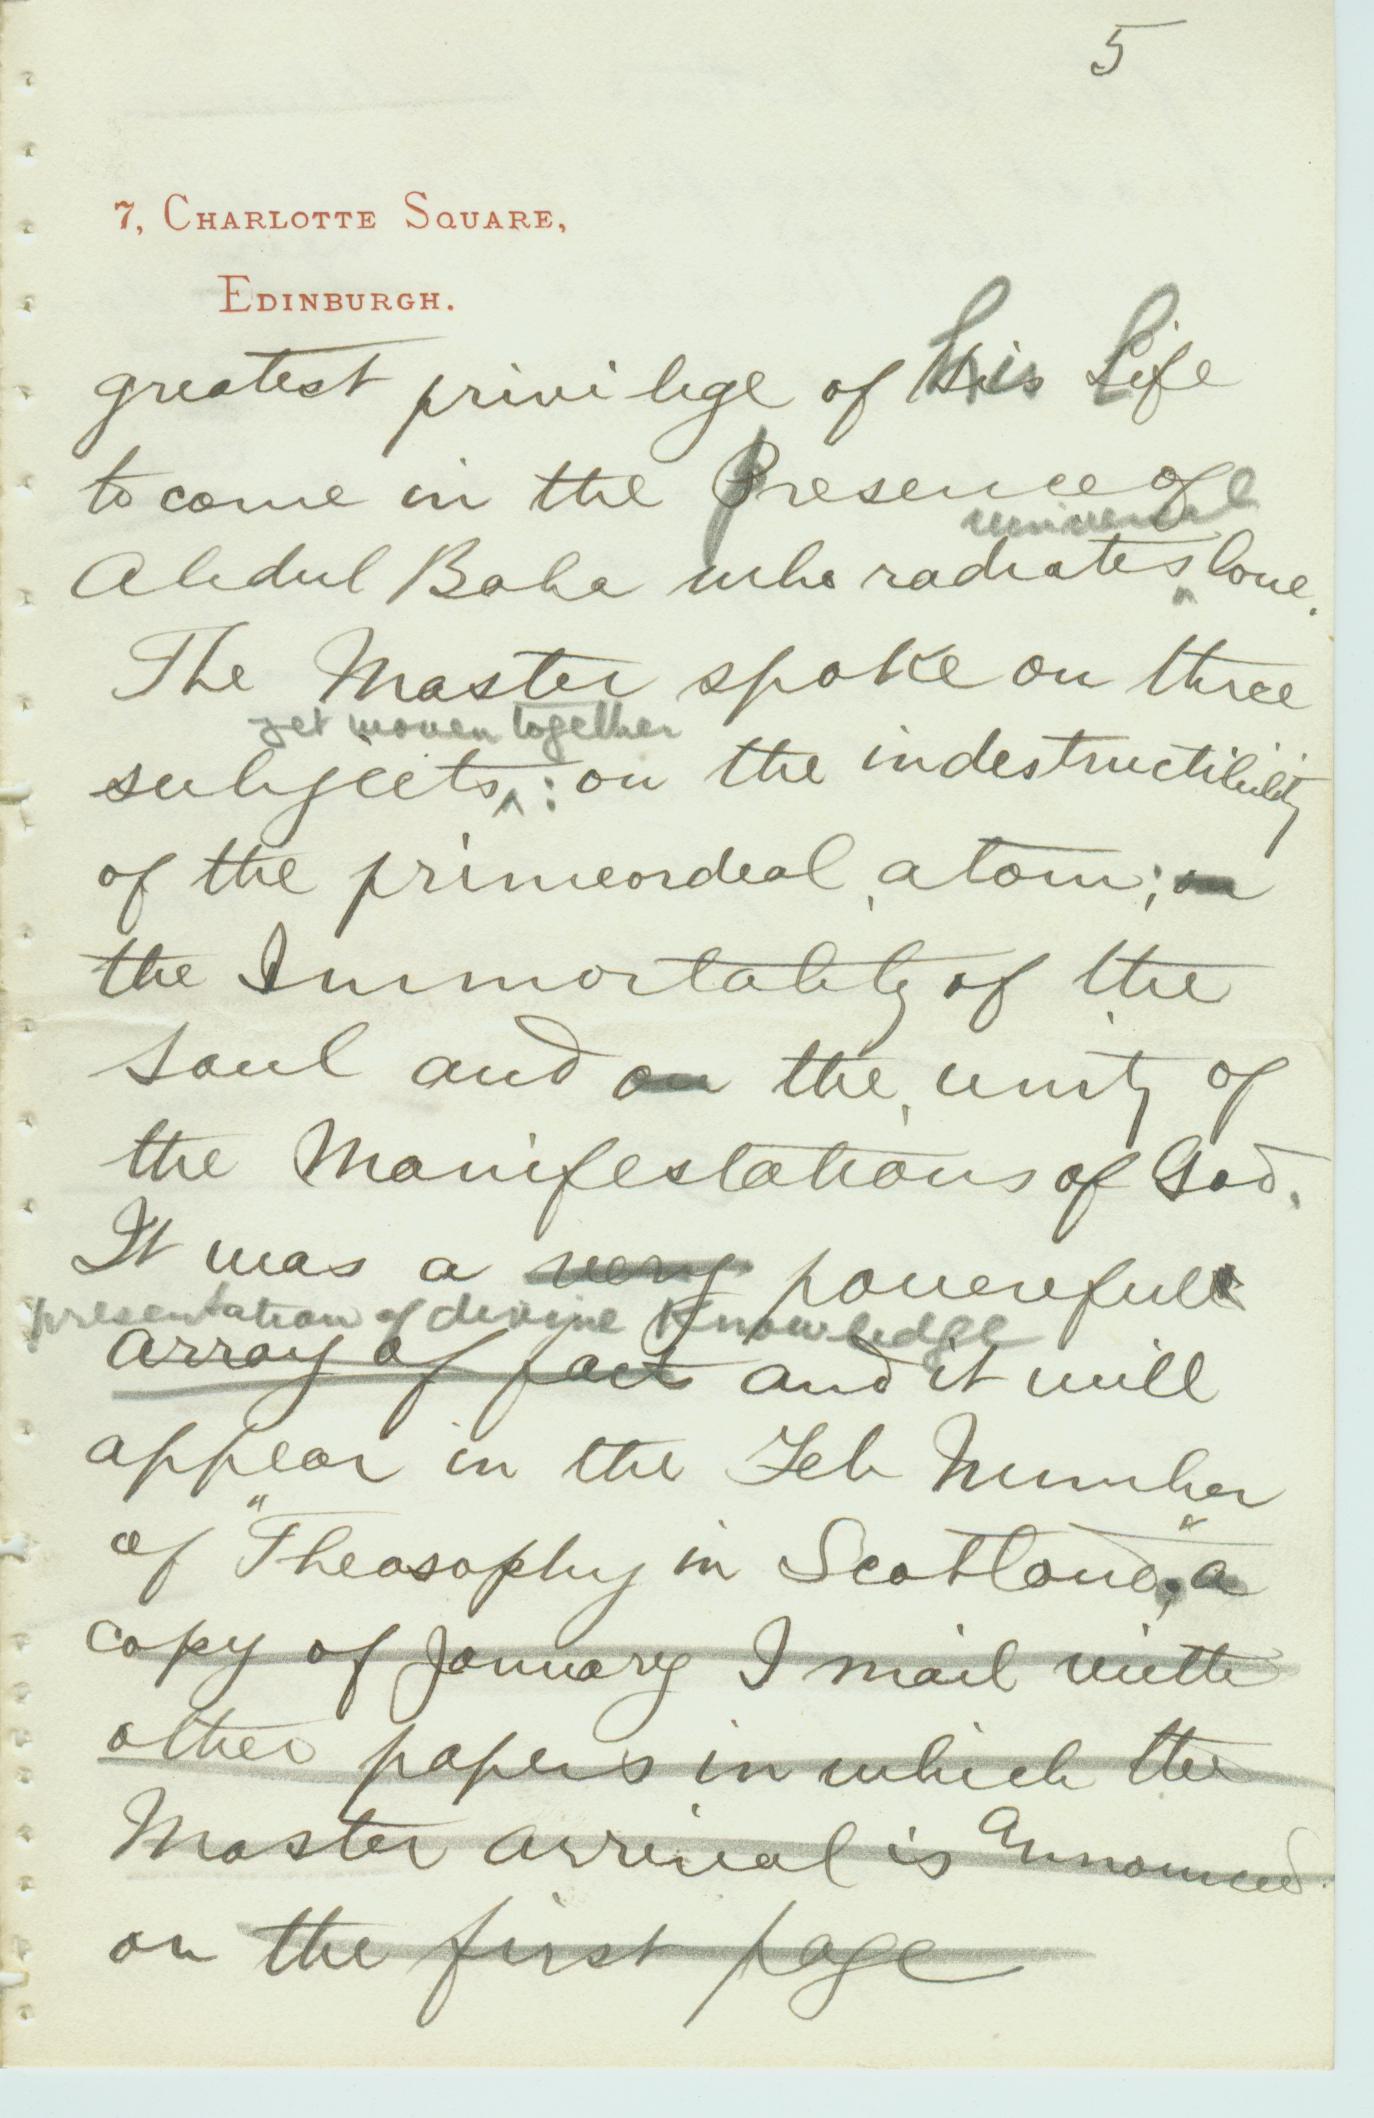 5
7, Charlotte Square,
Edinburgh.
greatest privilege of his life
to come in the presence of
universal
Abdul Baha who radiates ^ love.
The Master spoke on three
yet woven together
subjects ^ : on the indestructibility
of the primeordeal atom; on
the Immortality of the
soul and on the unity of
the Manifestations of God.
It was a very powerefull
presentation of divine Knowledge
array of fact and it will
appear in the Feb Number
of "Theosophy in Scotland," a
copy of January I mail with
other papers in which the
Master arrival is Announced
on the first page